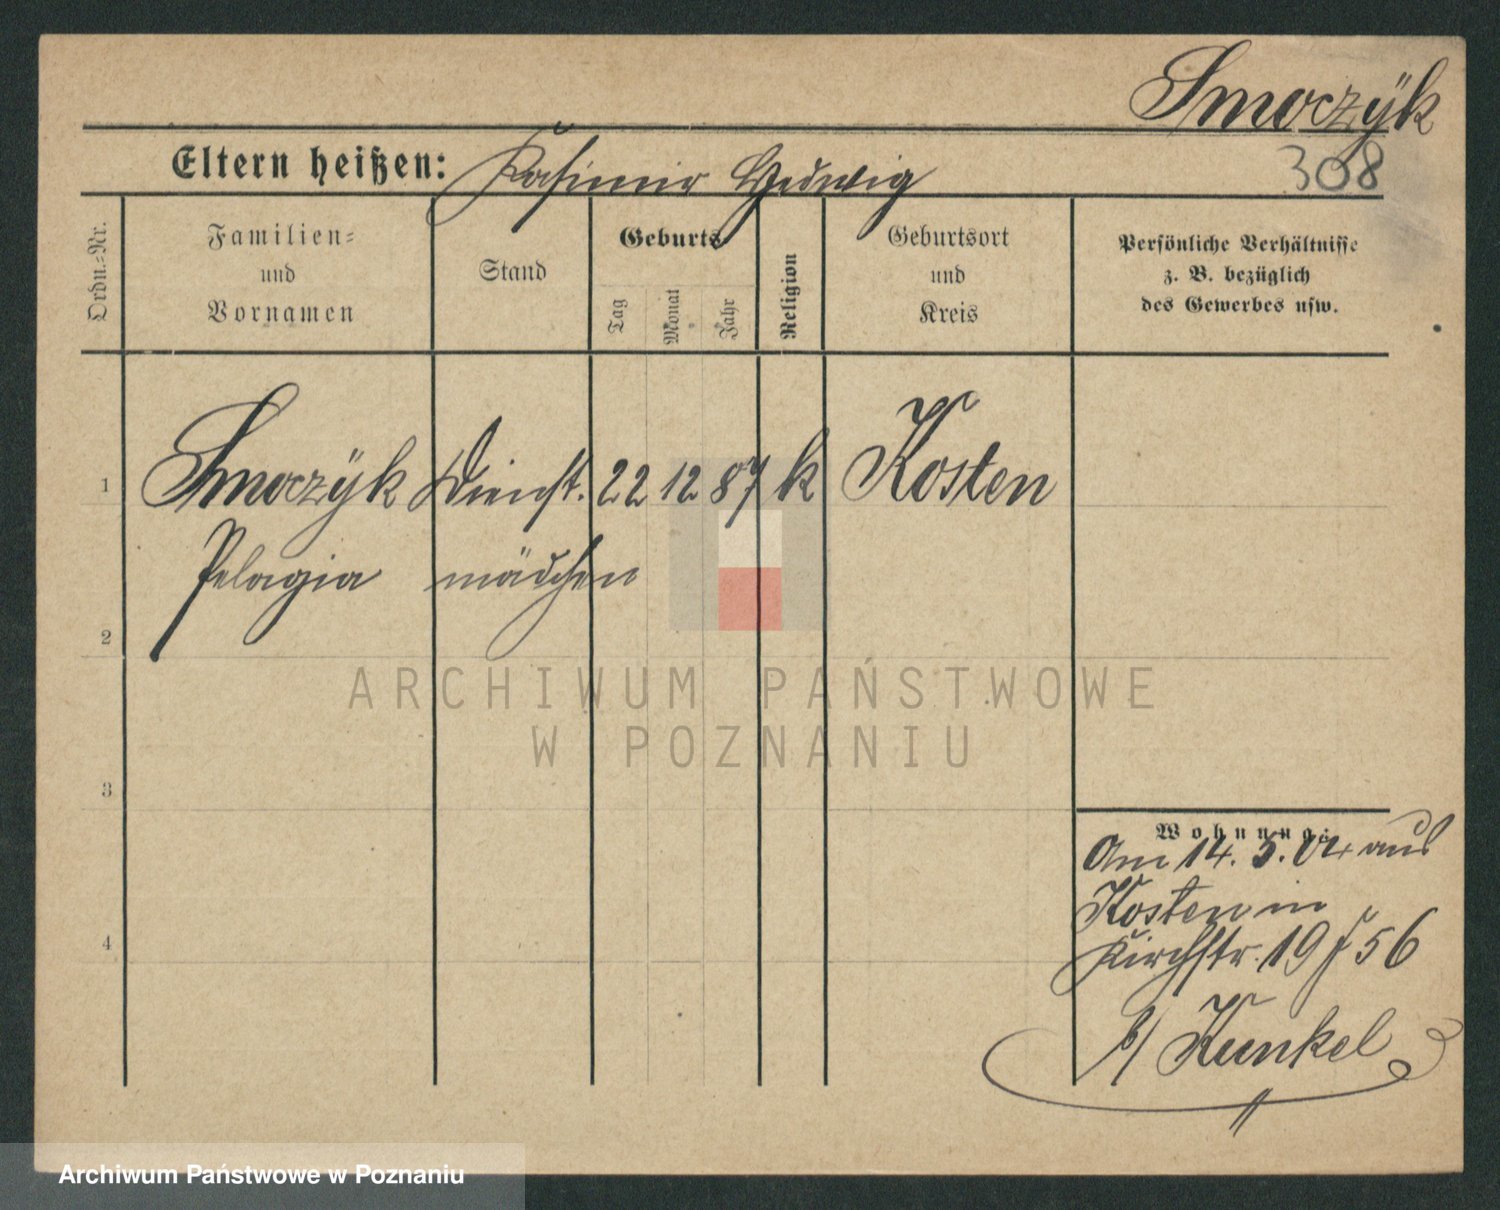 Smoczÿk
Eltern heißen: Kasimir Hedwig
308
Ordn.=Nr.
Familien=
und
Vornamen
Stand
Geburts
Tag
Monat
Jahr
Religion
Geburtsort
und
Kreis
Persönliche Verhältnisse
z. B. bezüglich
des Gewerbes usw.
1 Smoczÿk Dienst. 22 12 87 k Kosten
Pelagia mädchen
2
ARCHIWUM PAŃSTWOWE
W POZNANIU
3
Wohnung:
Am 14. 5. 04 aus
Kosten in
4
Kirchstr. 19 f 56
b/ Kunkel
Archiwum Państwowe w Poznaniu